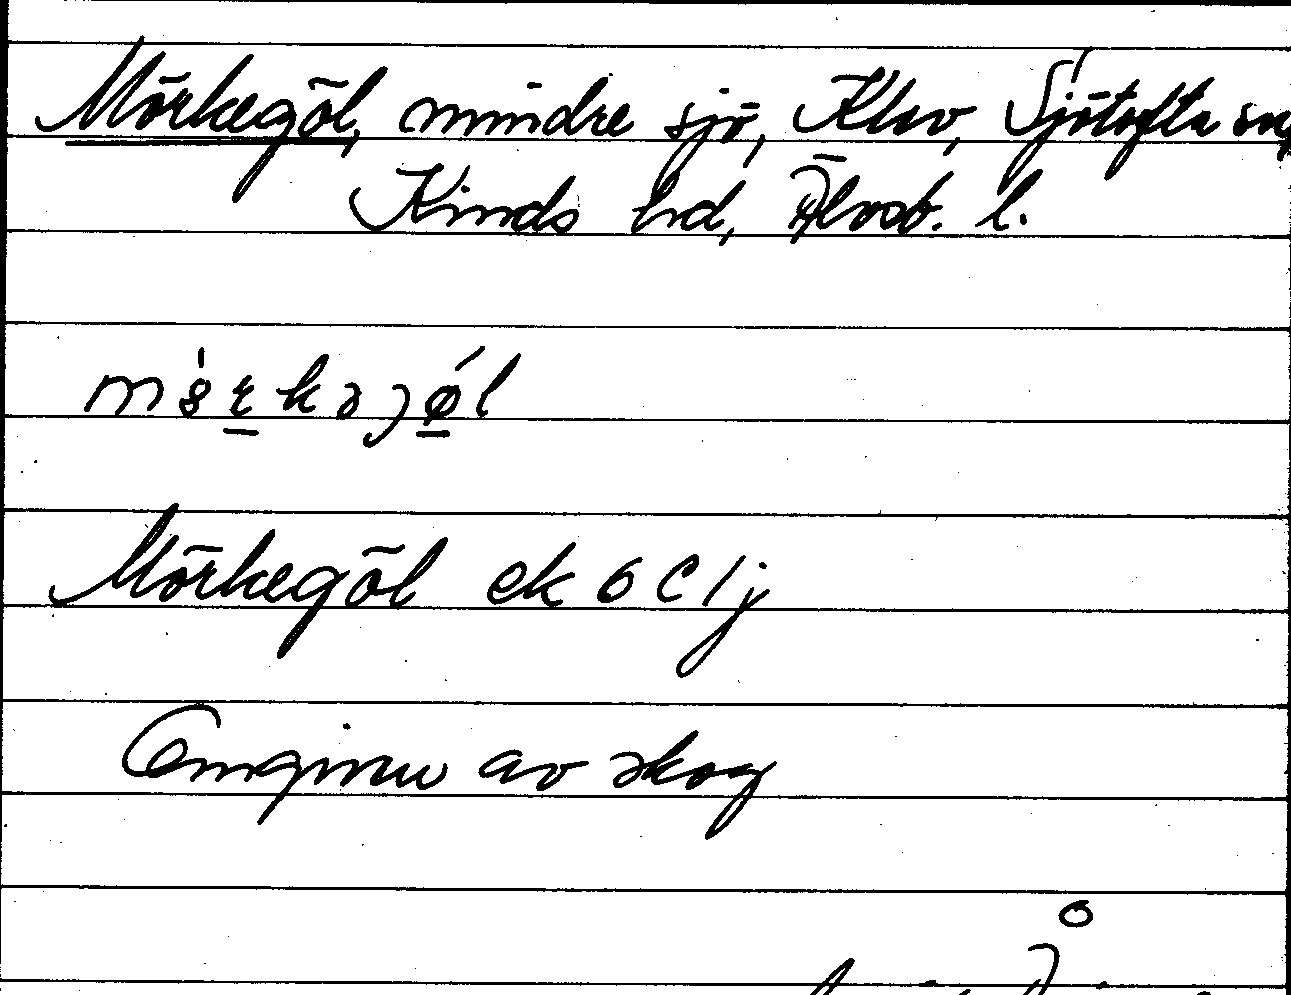 Mörkegöl, mindre sjö, Klev, Sjötofta sn,
Kinds hd, Älvsb. l.
Mörkegöl ek 6 C 1 j
Omgiven av skog